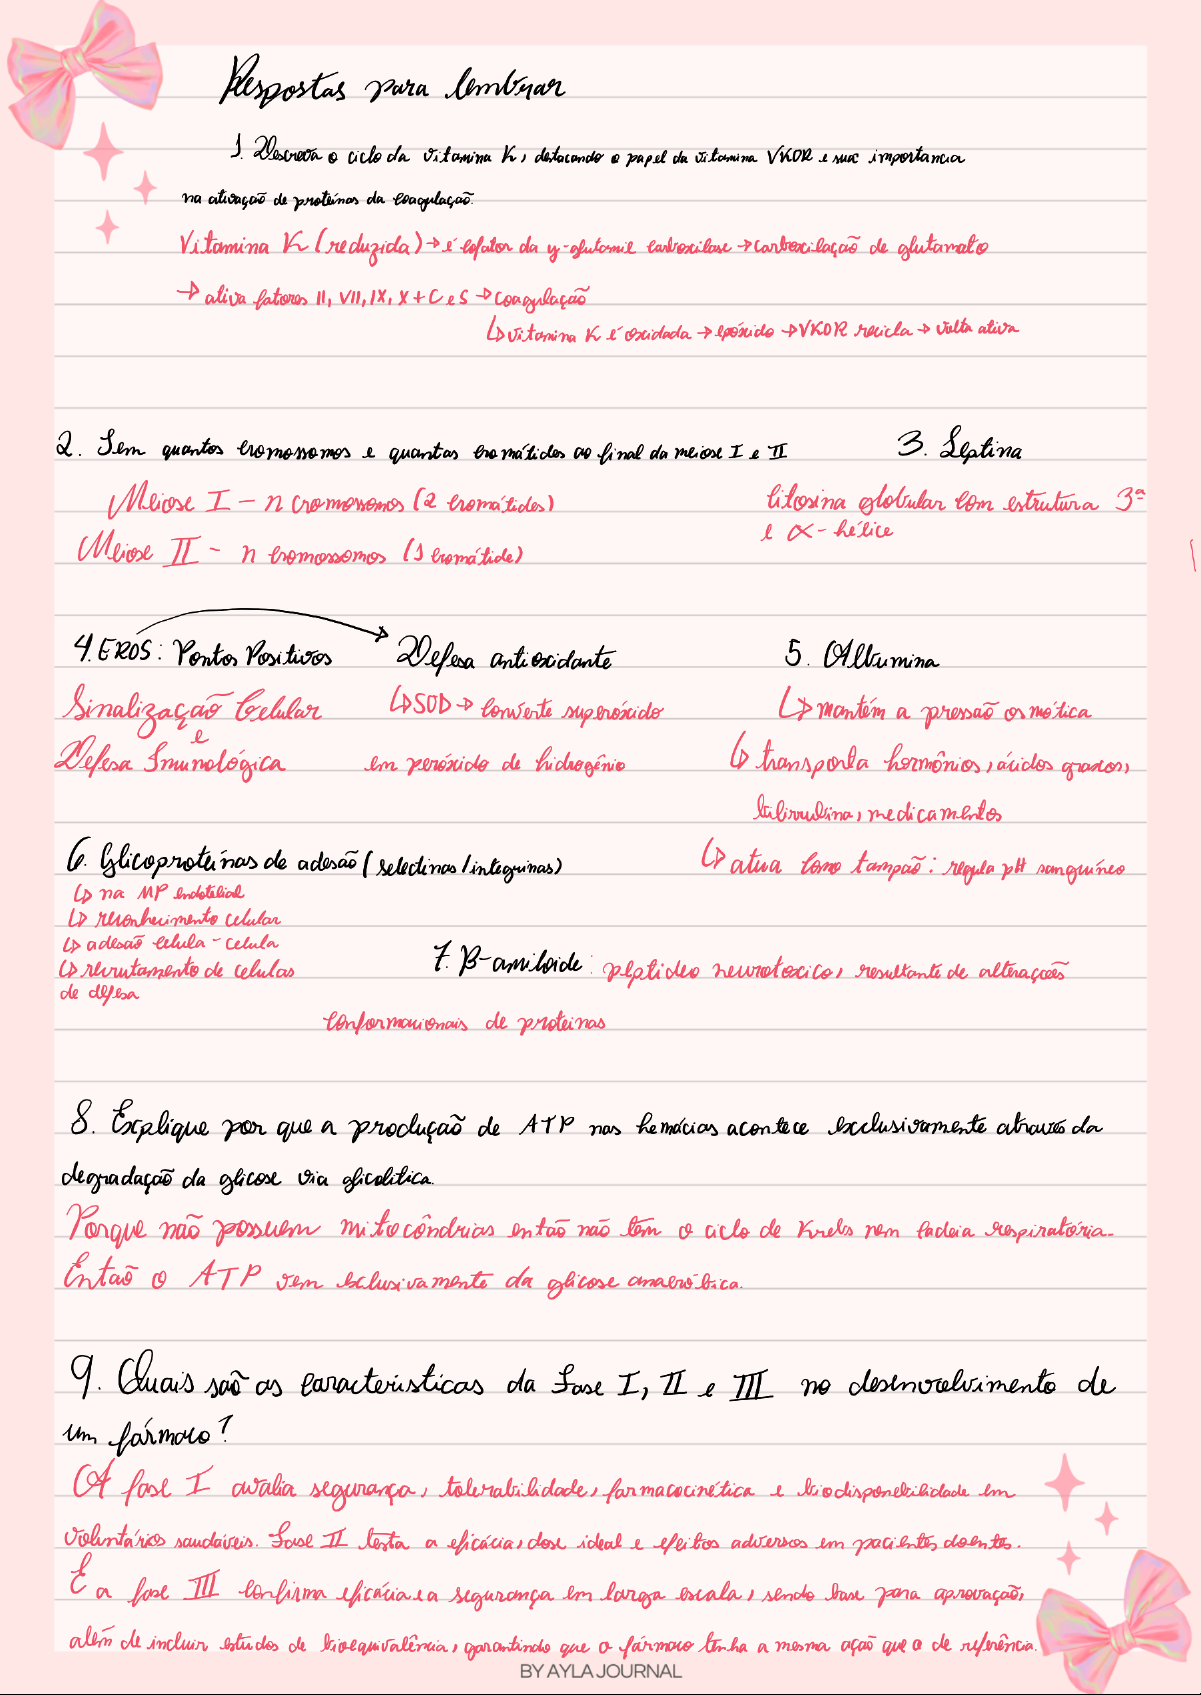 Respostas para lembrar
1. Descreva o ciclo da vitamina K, destacando o papel da vitamina VKOR e sua importancia
na ativação de proteínas da coagulação.
Vitamina K (reduzida) → é cofator da y-glutamil carboxilase → carboxilação de glutamato
→ ativa fatores II, VII, IX, X + C e S → coagulação
↳ vitamina K é oxidada → epóxido → VKOR recicla → volta ativa
2. Tem quantos cromossomos e quantas cromátides ao final da meiose I e II
Meiose I - n cromossomos (2 cromátides)
Meiose II - n cromossomos (1 cromátide)
3. Leptina
Citosina globular com estrutura 3ª
e α-hélice
4. EROS: Pontos Positivos → Defesa antioxidante
Sinalização Celular
e
Defesa Imunológica
↳ SOD → converte superóxido
em peróxido de hidrogênio
5. Albumina
↳ mantém a pressão osmótica
↳ transporta hormônios, ácidos graxos,
bilirrubina, medicamentos
↳ atua como tampão: regula pH sanguíneo
6. Glicoproteínas de adesão (selectinas/integrinas)
↳ na MP endotelial
↳ reconhecimento celular
↳ adesão celula-celula
↳ recrutamento de celulas
de defesa
7. B-amiloide: peptideo neurotoxico, resultante de alterações
conformacionais de proteinas
8. Explique por que a produção de ATP nas hemácias acontece exclusivamente através da
degradação da glicose via glicolitica.
Porque não possuem mitocôndrias então não têm o ciclo de Krebs nem cadeia respiratória.
Então o ATP vem exclusivamente da glicose anaeróbica.
9. Quais são as caracteristicas da Fase I, II e III no desenvolvimento de
um fármaco?
A fase I avalia segurança, tolerabilidade, farmacocinética e biodisponibilidade em
voluntários saudáveis. Fase II testa a eficácia, dose ideal e efeitos adversos em pacientes doentes.
E a fase III confirma eficácia e a segurança em larga escala, sendo base para aprovação,
além de incluir estudos de bioequivalência, garantindo que o fármaco tenha a mesma ação que o de referência.
BY AYLA JOURNAL